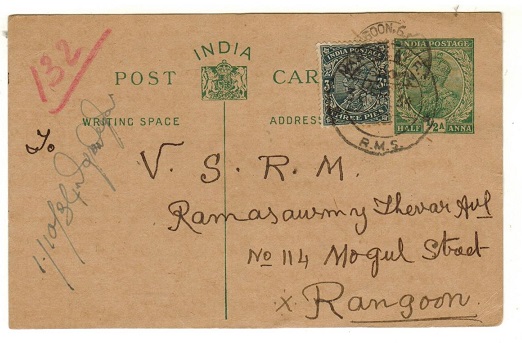 132
INDIA
POST CARD
WRITING SPACE
ADDRESS
INDIA POSTAGE
THREE PIES
INDIA POSTAGE
HALF ½A ANNA
R.M.S.
To
V. S. R. M.
Ramasawmy Thevar Avl
No 114 Mogul Street
x Rangoon